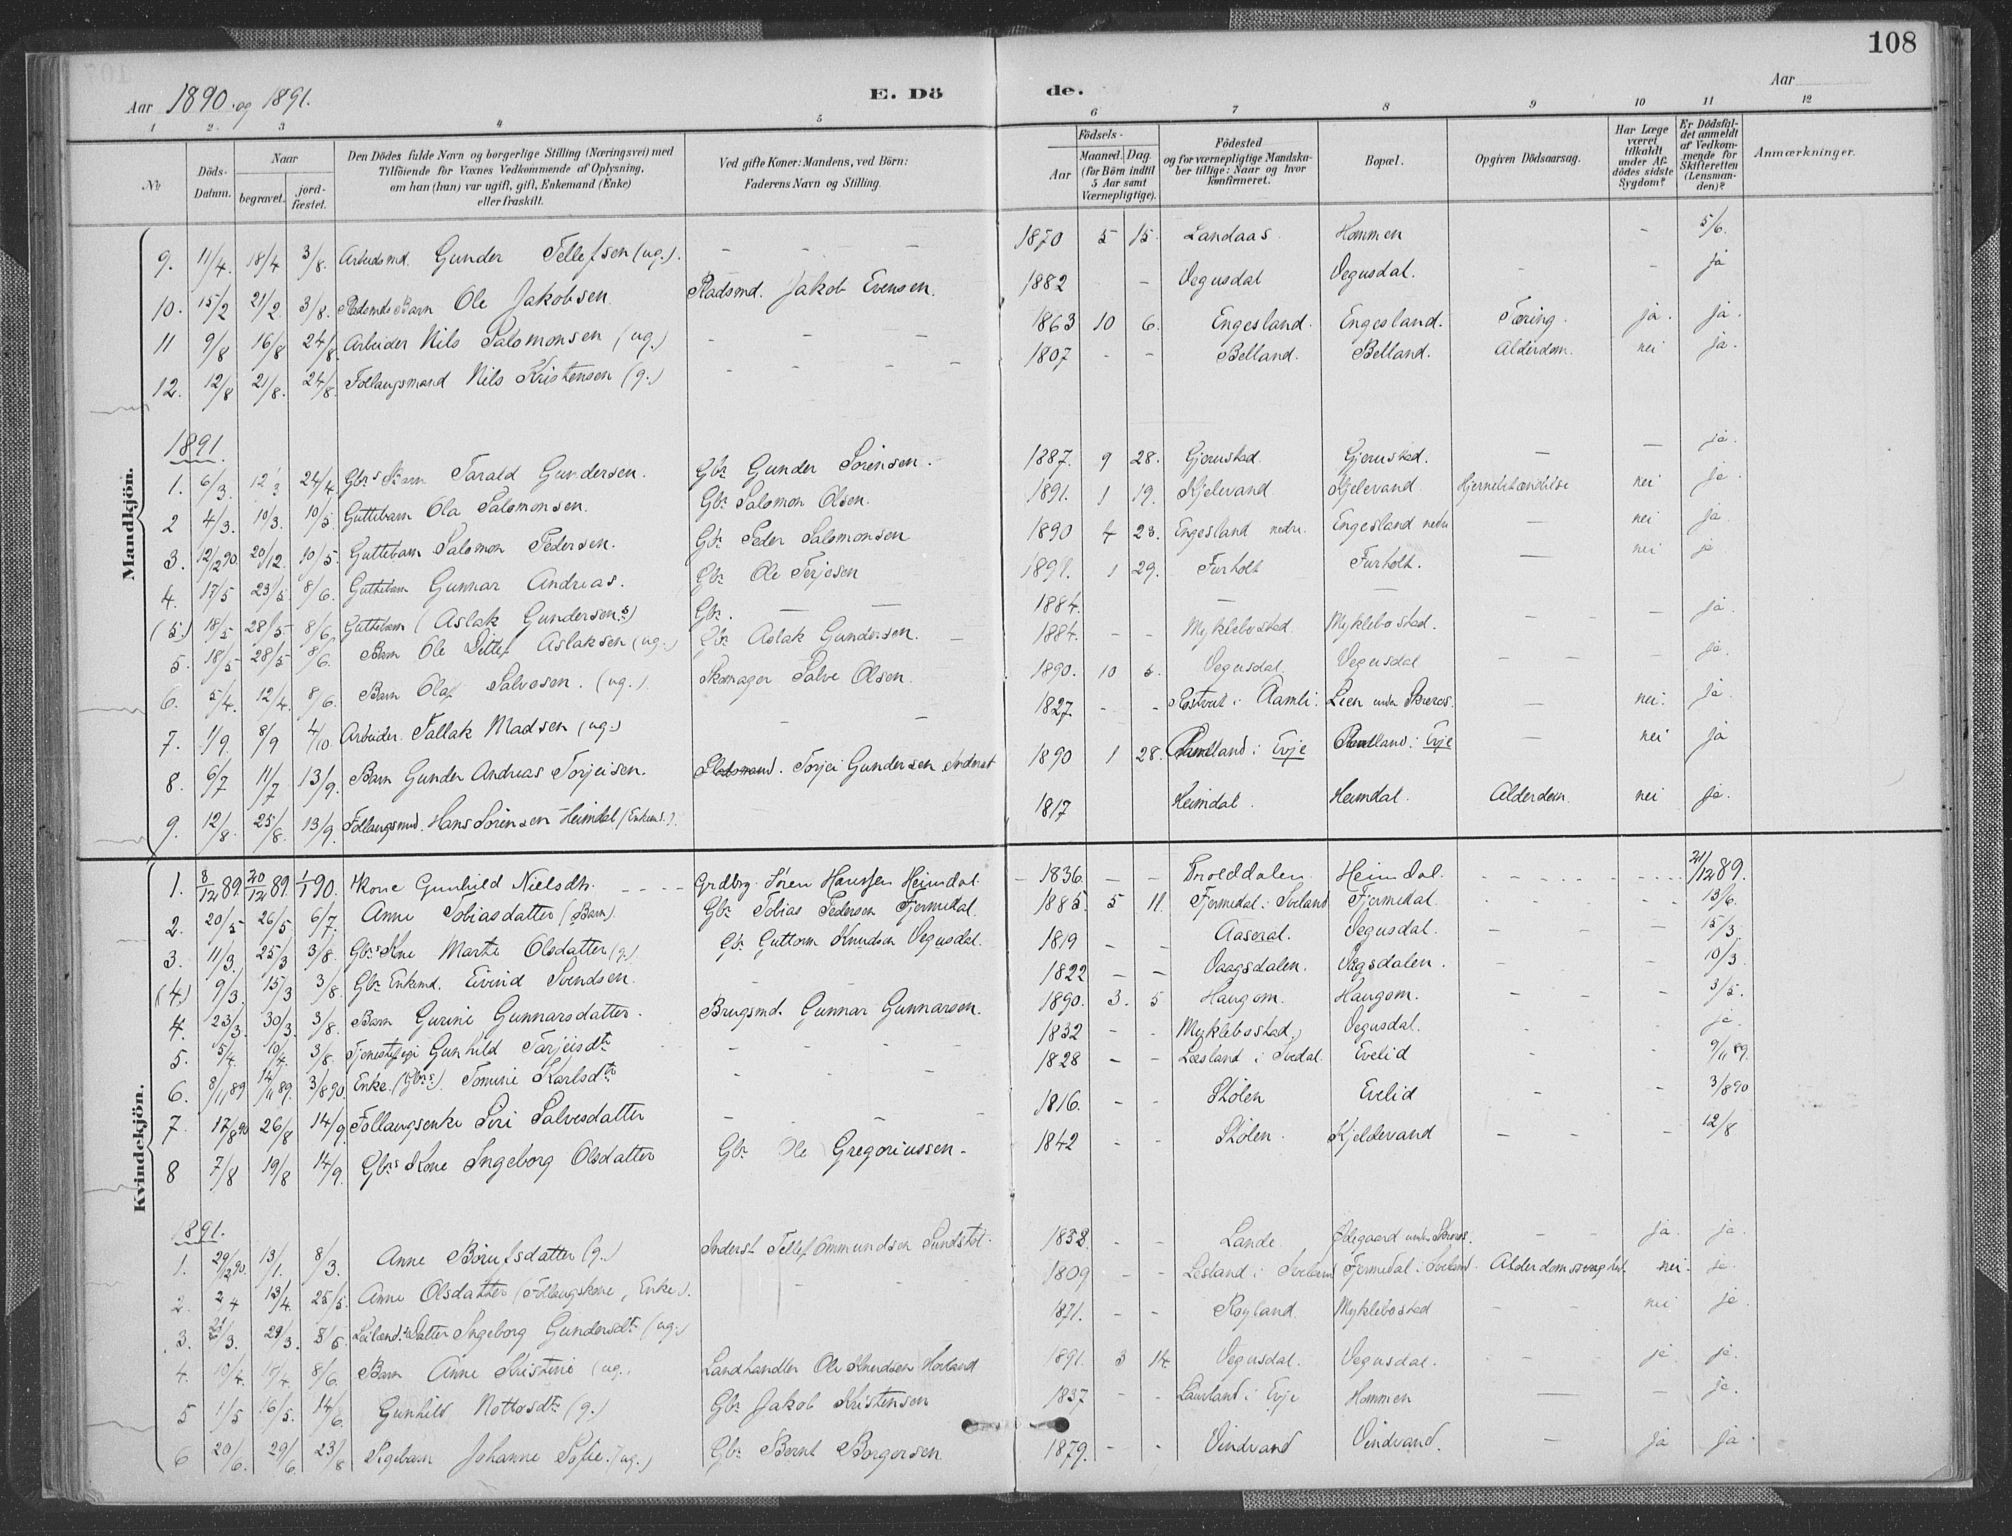 108
Aar 1890. og 1891. E. Dö de. Aar
1 2. 3 4 5 6 7 8 9 10 11 12
No Döds-Datum. Naar begravet. jord-fæstet. Den Dödes fulde Navn og borgerlige Stilling (Næringsvei) med Tilföiende for Voxnes Vedkommende af Oplysning, om han (hun) var ugift, gift, Enkemand (Enke) eller fraskilt. Ved gifte Koner: Mandens, ved Börn: Faderens Navn og Stilling. Födsels- Aar Maaned. Dag. (for Börn indtil 5 Aar samt Værnepligtige). Födested og for værnepligtige Mandskaber tillige: Naar og hvor konfirmeret. Bopæl. Opgiven Dödsaarsag. Har Læge været tilkaldt under Afdödes sidste Sygdom? Er Dödsfaldet anmeldt af Vedkommende for Skifteretten (Lensmanden)? Anmærkninger.
Mandkjön.
9. 11/4. 18/4 3/8. Arbeidsmd. Gunder Tellefsen (ug.). — — — 1870 5 15. Landaas. Hommen — 5/6.
10. 15/2 21/2. 3/8. Pladsmds Barn Ole Jakobsen. Pladsmd. Jakob Evensen. 1882 — Vegusdal Vegusdal. — — ja
11 9/8 16/8 24/8. Arbeider Nils Salomonsen (ug.) — — — 1863 10 6. Engesland. Engesland. Tæring. ja. ja.
12. 12/8 21/8. 24/8. Follaugsmand Nils Kristensen (g.) — — — — 1807 — — Belland. Belland. Alderdom. nei ja.
1891.
1. 6/3. 12/3 24/4. Gbrs Barn Tarald Gundersen. Gbr. Gunder Sørensen. 1887. 9 28. Gjerustad. Gjerustad. — — ja.
2 4/3. 10/3. 10/5 Guttebarn Ola Salomonsen. Gbr. Salomon Olsen. 1891. 1 19. Kjelevand Kjelevand Hjernebetændelse nei ja.
3. 12/12 90. 20/12. 10/5. Guttebarn Salomon Pedersen. Gbr. Peder Salomonsen 1890 4 23. Engesland nedre. Engesland nedre — nei ja
4. 17/5 23/5 8/6. Guttebarn Gunnar Andreas. Gbr. Ole Terjesen 1891. 1 29. Furholt Furholt. — nei ja
(5.) 18/5 28/5 8/6 Guttebarn (Aslak Gundersens) Gbr. — — 1884. —
5. 18/5 28/5 8/6. Barn Ole Ditlef Aslaksen (ug.) Gbr. Aslak Gundersen. — 1884. — — Myklebostad. Myklebostad. — — ja.
6. 5/4. 12/4. 8/6. Barn Olaf Salvesen. (ug.) Skomager Salve Olsen. 1890. 10 5. Vegusdal. Vegusdal — — ja.
7. 1/9. 8/9 4/10 Arbeider. Tallak Madsen (ug.) — — 1827 — — i Aamli. Lien under Skreros. — nei. ja.
8. 6/7 11/7 13/9. Barn Gunder Andreas Torjeisen. Pladsmand. Torjei Gundersen Inderst 1890 1 28. i Evje i Evje — nei ja
9. 12/8. 25/8. 13/9. Follaugsmd. Hans Sørensen Heimdal (Enkem.). 1817 Heimdal. Heimdal. Alderdom. nei ja.
Kvindekjön.
1. 8/12 89. 20/12 89. 1/1 90. Kone Gunhild Nielsdtr. - - - - Grdbrg. Søren Hanssen Heimdal. 1836. — — Trolddalen Heimdal. 21/12 89.
2. 20/5 26/5 6/7. Anne Tobiasdatter (Barn). Gbr. Tobias Pedersen Fjermedal. 1885. 5 11. Fjermedal i Iveland Fjermedal. - - - 13/6.
3. 11/3. 25/3 3/8. Gbrs Kone Marthe Olsdatter (g.) Gbr. Guttorm Knudsen Vegusdal. 1819 — — Aaseral. Vegusdal. — — — 15/3.
(4.) 9/3. 15/3 3/8. Gbr. Enkemd. Eivind Svendsen. — — 1822 — — Vaagsdalen. Vagsdalen. — — 10/3.
4. 23/3. 30/3. 3/8. Barn Gurine Gunnarsdatter. Brugsmd. Gunnar Gunnarsen. 1890. 3. 5 Haugom. Haugom. — — — 3/5.
5. 5/4. 10/4. 3/8. Tjenestepige Gunhild Tarjeisdtr — — — — 1832 — — Myklebostad. Vegusdal. — ja.
6. 8/11 89 14/11 89. 3/8 90. Enke. (Gbrs). Tomine Karlsdtr — — — 1828 — — Evelid — — 9/11 89.
7. 17/8 90 26/8 14/9. Follaugsenke Siri Salvesdatter — — — 1816. — — Stølen Evelid — — 3/8 90
8 7/8 19/8 14/9. Gbrs Kone Ingeborg Olsdatter Gbr. Ole Gregoriussen. 1842 — — Stølen. Kjeldevand — — — 12/8
1891.
1. 29/12 90. 13/1. 8/3. Anne Børufsdatter (g.) Inderst Tellef Ommundsen 1858. — — Lande Ødegaard under Skreros. — — ja. ja.
2. 2/4 13/4. 25/5. Anne Olsdatter (Follaugskone, Enke.). — — 1809 — — i Iveland Fjermedal i Iveland. nei. ja.
3. 21/3. 29/3. 8/6. datter Ingeborg Gundersdtr (ug.) 1871. — — Røyland Myklebostad — — nei ja.
4. 10/4. 17/4. 8/6. Barn Anne Kristine (ug. Landhandler Ole Knudsen Hovland 1891. 3 14. Vegusdal. Vegusdal. — ja ja.
5 1/5 16/5. 14/6. Gunhild Nottosdtr (g.) Gbr. Jakob Kristensen 1837 — — i Evje Hommen — — ja.
6 20/6. 29/6. 23/8 Pigebarn Johanne Sofie. (ug.) Gbr. Bernt Borgersen 1879. — — Vindvand Vindvand. — ja ja.